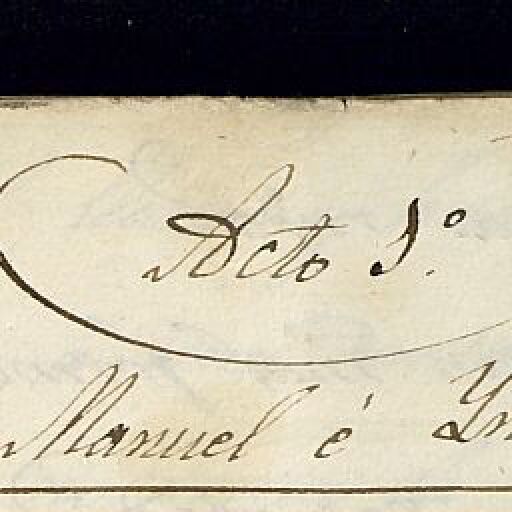 Acto 1º.
Manuel é